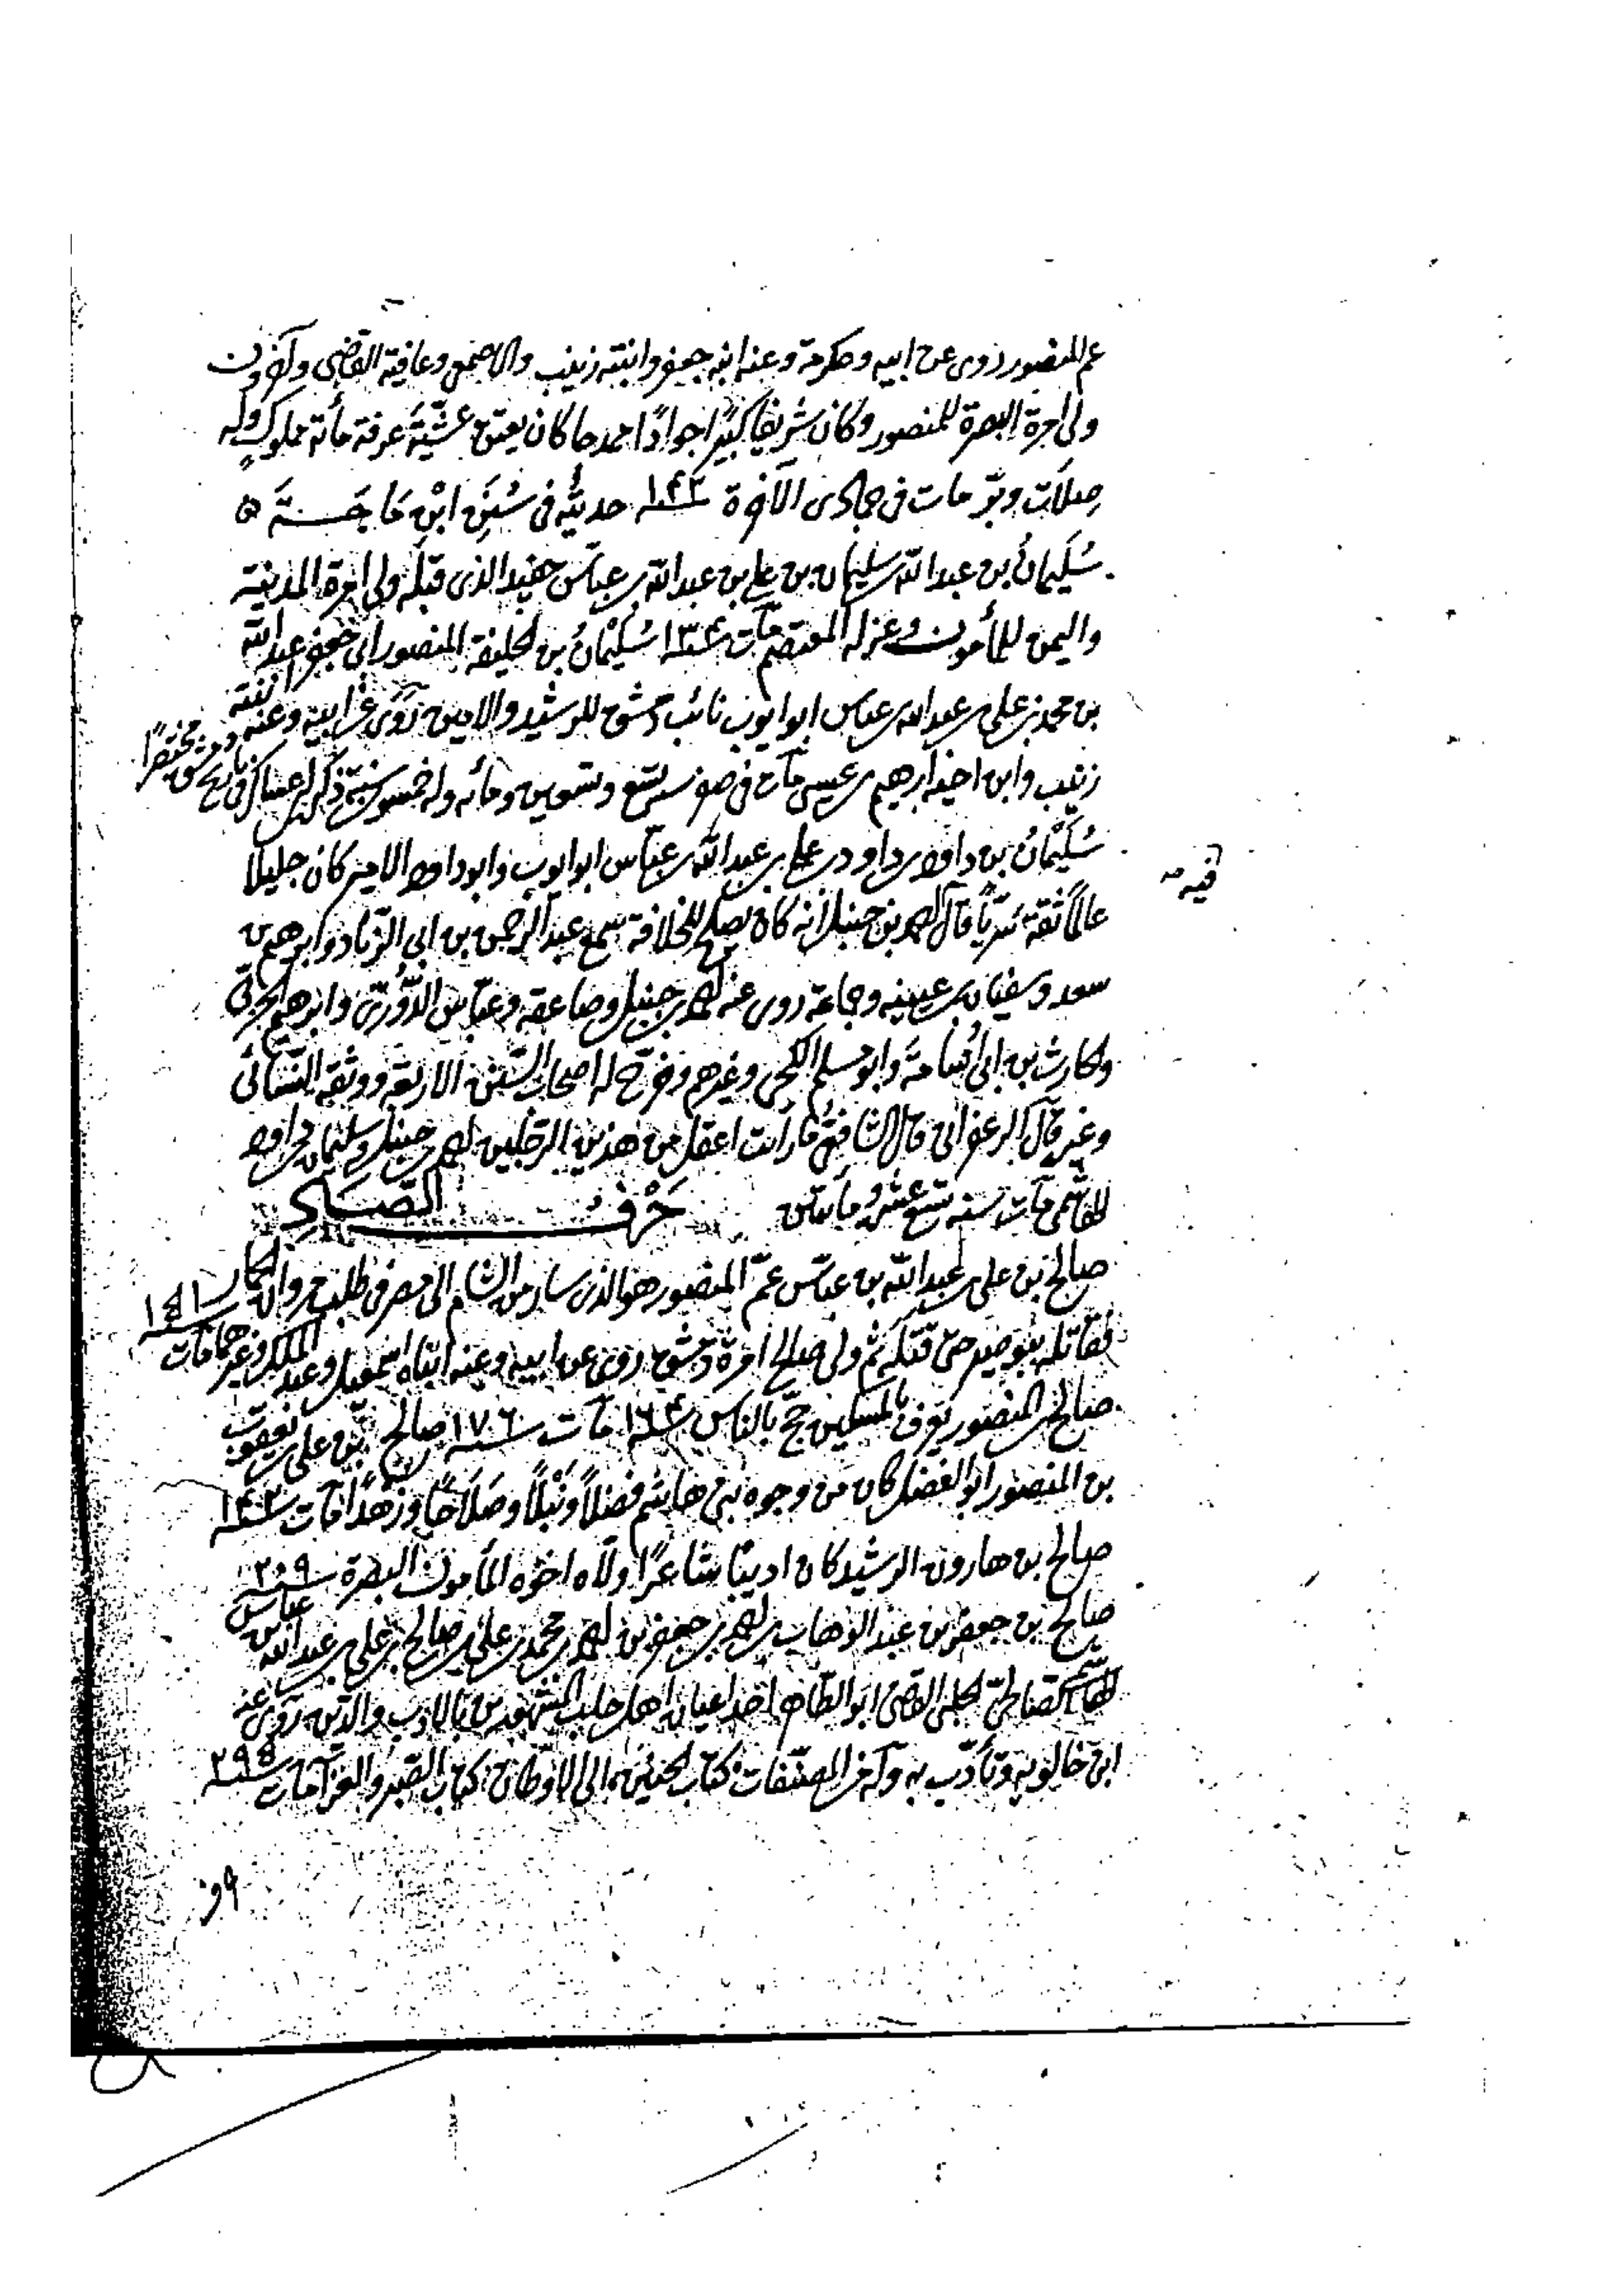 عم المنصور روى عن ابيه وعكرمة وعنه ابنه جعفر وابنته زينب والاصمعي وعافية القاضي وآخرون
ولى امرة البصرة للمنصور وكان شريفا كبيرًا جوادًا ممدحا كان يعتق عشيّة عرفة مائة مملوك وله
صِلات وبرّ مات في جمادى الآخرة سنة ١٤٢ حديثه في سُنَن ابْنِ مَاجَة ه
سُلَيمانُ بن عبد الله سليمان بن علي بن عبد الله بن عباس حفيد الذي قبله ولى امرة المدينة
واليمن للمأمون وعزله المعتصم مات سُلَيْمَانُ بن الخليفة المنصور ابي جعفر عبد الله
بن محمد بن علي بن عبد الله بن عباس ابو ايوب نائب دمشق للرشيد والامين روى عن ابيه وعنه ابنته
زينب وابن اخيه ابرهيم بن عيسى مات في صفر سنة تسع وتسعين ومائه وله خمسون سنة ذكره ابن عساكر في تاريخ دمشق مختصرًا
سُلَيْمَانُ بن داود بن داود بن علي بن عبد الله بن عباس ابو ايوب وابو داود الامير كان جليلا
عالماً ثقة سريّاً قال احمد بن حنبل انه كان يصلح للخلافة سمع عبد الرحمن بن ابي الزناد وابرهيم بن
سعد وسفيان بن عيينه وجماعة روى عنه احمد بن حنبل وصاعقه وعباس الدّوري وابرهيم الحربي
والحارث بن ابي اُسامة وابو مسلم الكجي وغيرهم وخرّج له اصحاب السّنن الاربعة ووثقه النّسائي
وغيره قال الزعفراني قال الشافعي ما رأيت اعقل من هذين الرجلين احمد بن حنبل وسليمان بن داود
الهاشمي مات سنه تسع عشر ومأيتين حَرْفُ الصَّادِ
صالح بن علي بن عبد الله بن عباس عمّ المنصور هو الذي سار من الشام الى مصر في طلب مروان الحمار
فقاتله ببوصير حتى قتله ثم ولى صالح امرة دمشق روى عن ابيه وعنه ابناه اسمعيل وعبد الملك وغيرهما مات
صالح بن المنصور يعرف بالمسكين حجّ بالناس مات سنة ١٧٦ صالح بن علي بن يعقوب
بن المنصور ابو الفضل كان من وجوه بني هاشم فضلاً ونُبلاً وصَلاحًا وزهدًا مات
صالح بن هارون الرشيد كان اديبًا شاعرًا ولّاه اخوه المأمون البصرة سنة ٢٠٩
صالح بن جعفر بن عبد الوهاب بن احمد بن جعفر بن احمد بن محمد بن علي بن صالح بن علي بن عبد الله بن عباس
الهاشمي الصالحيّ الحلبي القاضي ابو الطاهر احد اعيان اهل حلب المشهورين بالادب والدّين روى عن
ابن خالويه وتأدّب به وله من المصنّفات كتاب الحنين الى الاوطان كتاب الصّبر والعزا مات سنة ٣٩٥
فيه